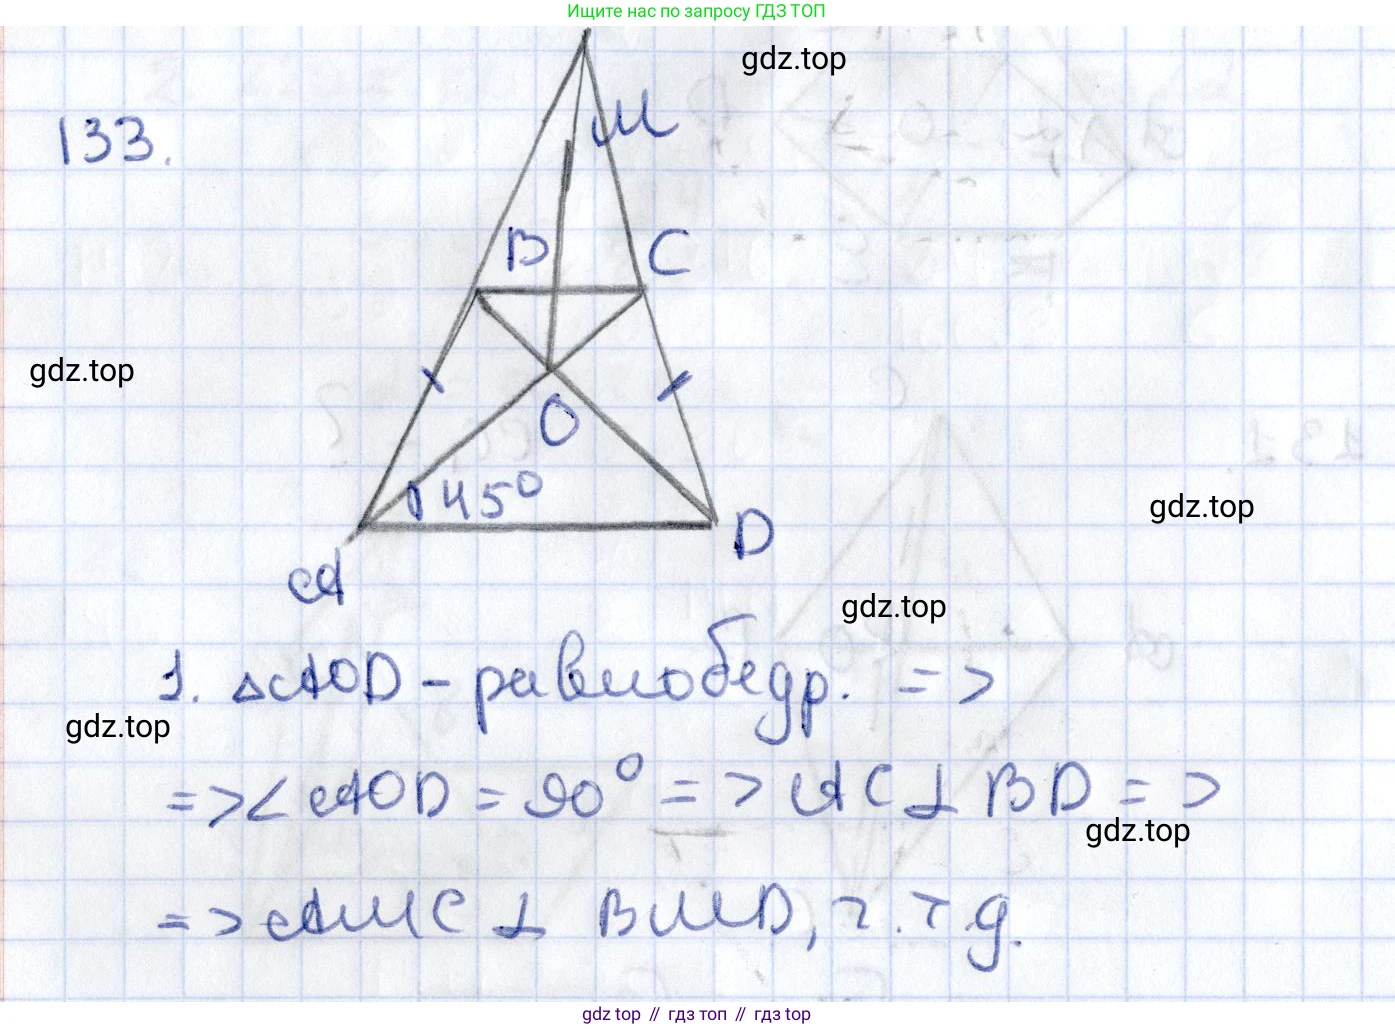 Ищите нас по запросу ГДЗ ТОП
gdz.top
133.
M
B
C
gdz.top
O
45°
gdz.top
D
A
gdz.top
1. △AOD - равнобедр. =>
gdz.top
=> ∠AOD = 90° => AC ⊥ BD =>
gdz.top
=> AMC ⊥ BMD, ч.т.д.
gdz top // гдз топ // gdz top